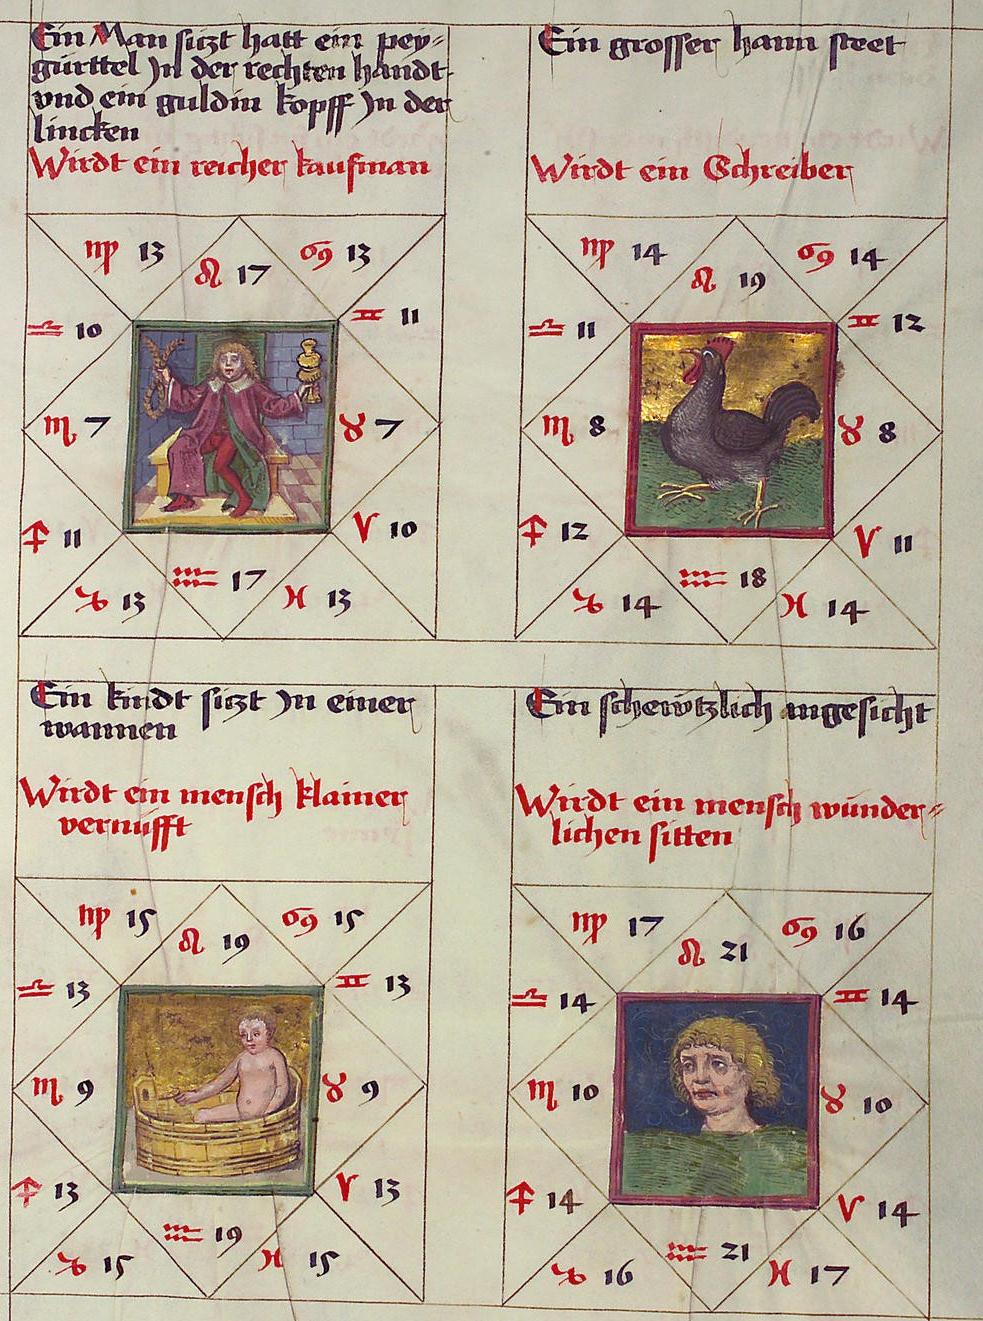 Ein Man sitzt hatt ein pey=
gürttel Jn der rechten handt
vnd ein guldin kopff Jn der
lincken
Wirdt ein reicher kaufman
♍ 13
♌ 17
♋ 13
♎ 10
♊ 11
♏ 7
♉ 7
♐ 11
♈ 10
♑ 13
♒ 17
♓ 13
Ein grosser hann steet
Wirdt ein Schreiber
♍ 14
♌ 19
♋ 14
♎ 11
♊ 12
♏ 8
♉ 8
♐ 12
♈ 11
♑ 14
♒ 18
♓ 14
Ein kindt sitzt Jn einer
wannen
Wirdt ein mensch klainer
vernufft
♍ 15
♌ 19
♋ 15
♎ 13
♊ 13
♏ 9
♉ 9
♐ 13
♈ 13
♑ 15
♒ 19
♓ 15
Ein schewtzlich angesicht
Wirdt ein mensch wunder=
lichen sitten
♍ 17
♌ 21
♋ 16
♎ 14
♊ 14
♏ 10
♉ 10
♐ 14
♈ 14
♑ 16
♒ 21
♓ 17